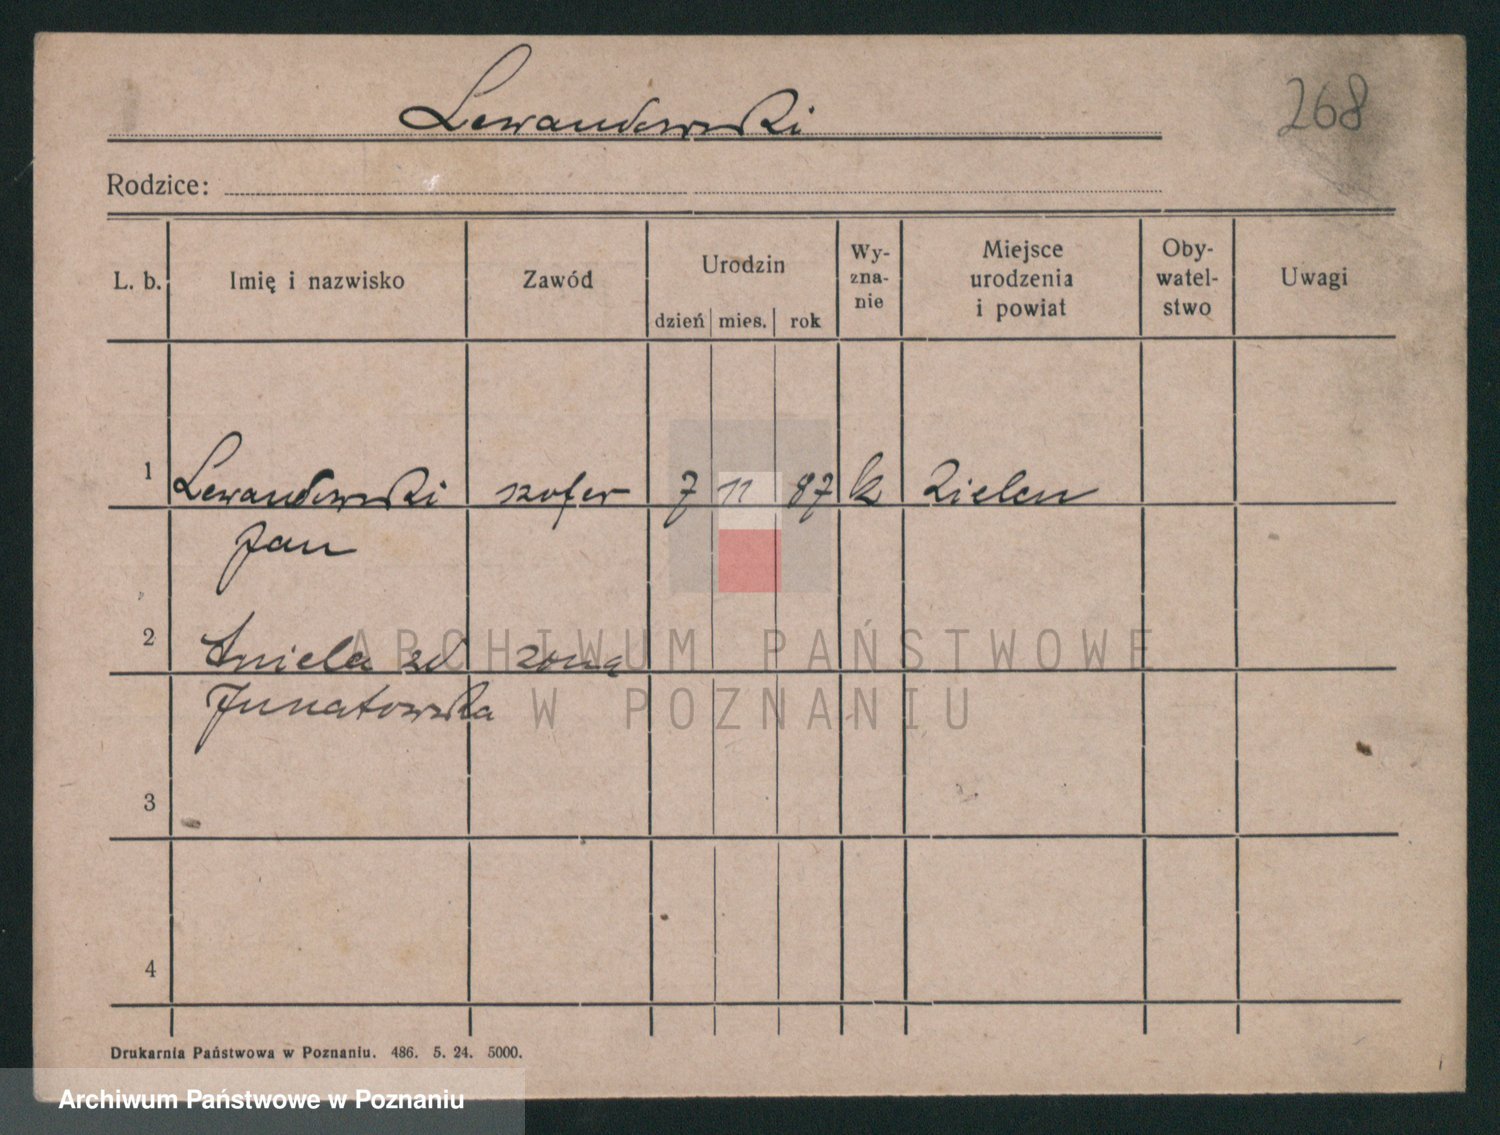 Lewandowski
268
Rodzice:
L. b. Imię i nazwisko Zawód Urodzin dzień mies. rok Wy-zna-nie Miejsce urodzenia i powiat Oby-watel-stwo Uwagi
1 Lewandowski szofer 7 11 87 k Zielen
Jan
2 Aniela zd żona
3
4
Drukarnia Państwowa w Poznaniu. 486. 5. 24. 5000.
ARCHIWUM PAŃSTWOWE
W POZNANIU
Archiwum Państwowe w Poznaniu